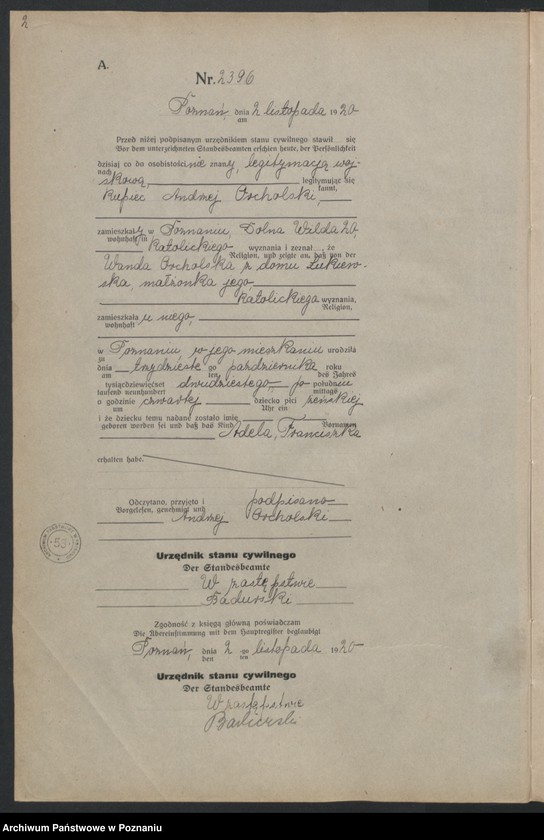 2
A.
Nr. 2396
Poznań, dnia 2 listopada 1920
am
Przed niżej podpisanym urzędnikiem stanu cywilnego stawił się
Vor dem unterzeichneten Standesbeamten erschien heute, der Persönlichkeit
dzisiaj co do osobistości nie znany, legitymacją woj-
nach
skową, legitymując się
kannt,
kupiec Andrzej Ocholski,
zamieszkały w Poznaniu, Dolna Wilda 20,
wohnhaft in
katolickiego wyznania i zeznał że
Religion, und zeigte an, daß von der
Wanda Ocholska z domu Lukiew-
ska, małżonka jego
katolickiego wyznania,
Religion,
zamieszkała u niego,
wohnhaft
w Poznaniu w jego mieszkaniu urodziła
zu
dnia trzydzieste go października roku
am ten des Jahres
tysiącdziewięćset dwudziestego, po południu
tausend neunhundert mittags
o godzinie czwartej dziecko płci żeńskiej
um Uhr ein
i że dziecku temu nadane zostało imię
geboren worden sei und daß das Kind Vornamen
Adela, Franciszka
erhalten habe.
Odczytano, przyjęto i podpisano
Vorgelesen, genehmigt und
Andrzej Ocholski
Urzędnik stanu cywilnego
Der Standesbeamte
W zastępstwie
Badurski
Zgodność z księgą główną poświadczam
Die Übereinstimmung mit dem Hauptregister beglaubigt
Poznań, dnia 2 -go listopada 1920
den ten
Urzędnik stanu cywilnego
Der Standesbeamte
W zastępstwie
53
Archiwum Państwowe w Poznaniu